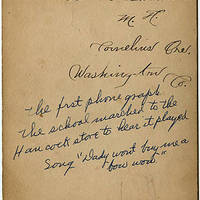 M. H.
Cornelius Ore.
Washington
Co.
The first phonograph
the school marched to the
Hancock store to hear it played
Song "Dady wont buy me a
bow wow."